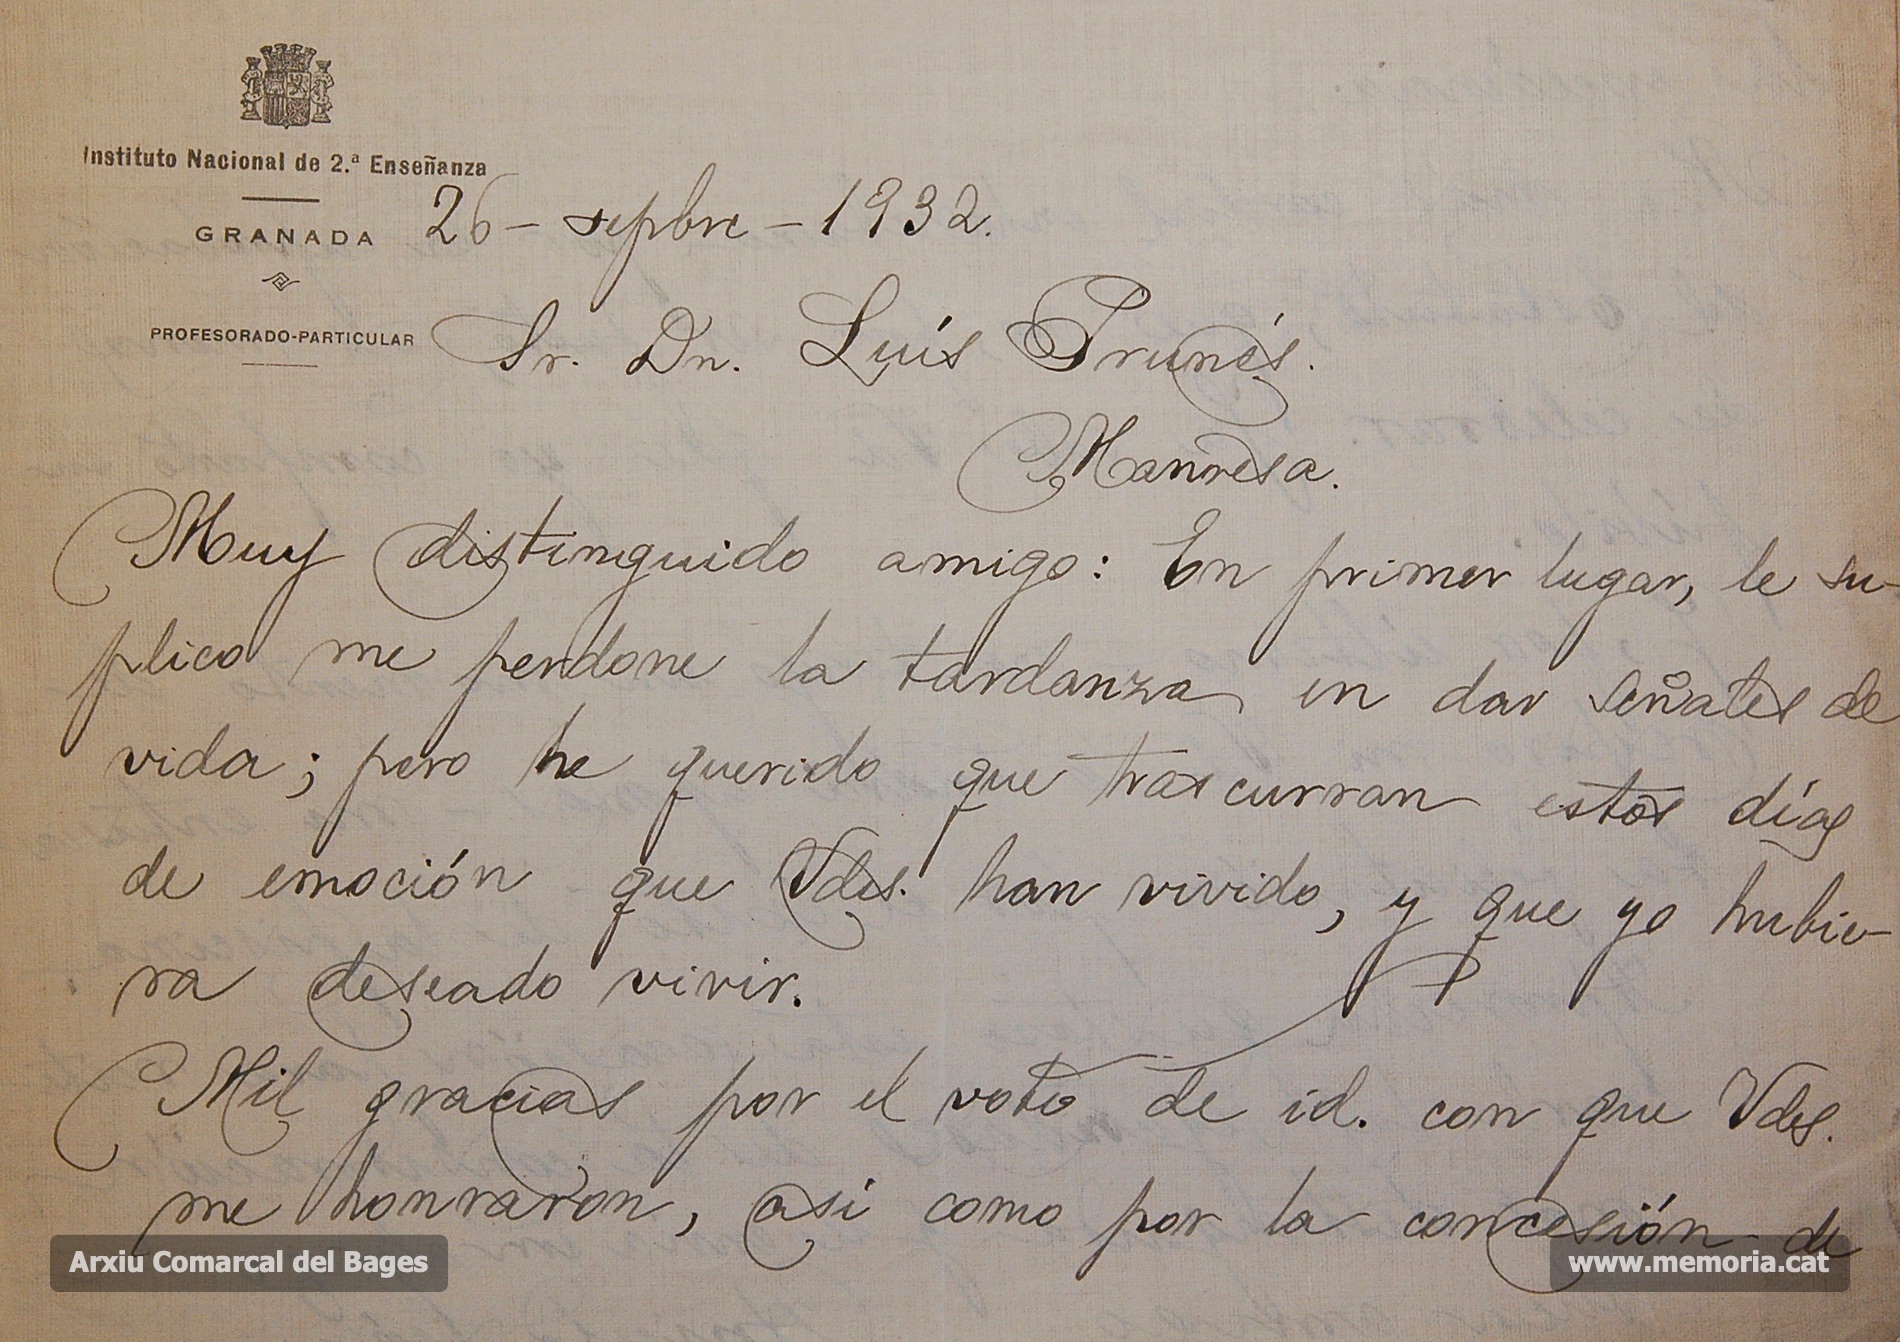 Instituto Nacional de 2.ª Enseñanza
GRANADA
PROFESORADO-PARTICULAR
26 - sepbre - 1932.
Sr. Dn. Luís Prunés.
Manresa.
Muy distinguido amigo: En primer lugar, le su-
plico me perdone la tardanza en dar señales de
vida; pero he querido que trascurran estos días
de emoción que Vdes. han vivido, y que yo hubie-
ra deseado vivir.
Mil gracias por el voto de id. con que Vdes.
me honraron, así como por la concesión de
Arxiu Comarcal del Bages
www.memoria.cat